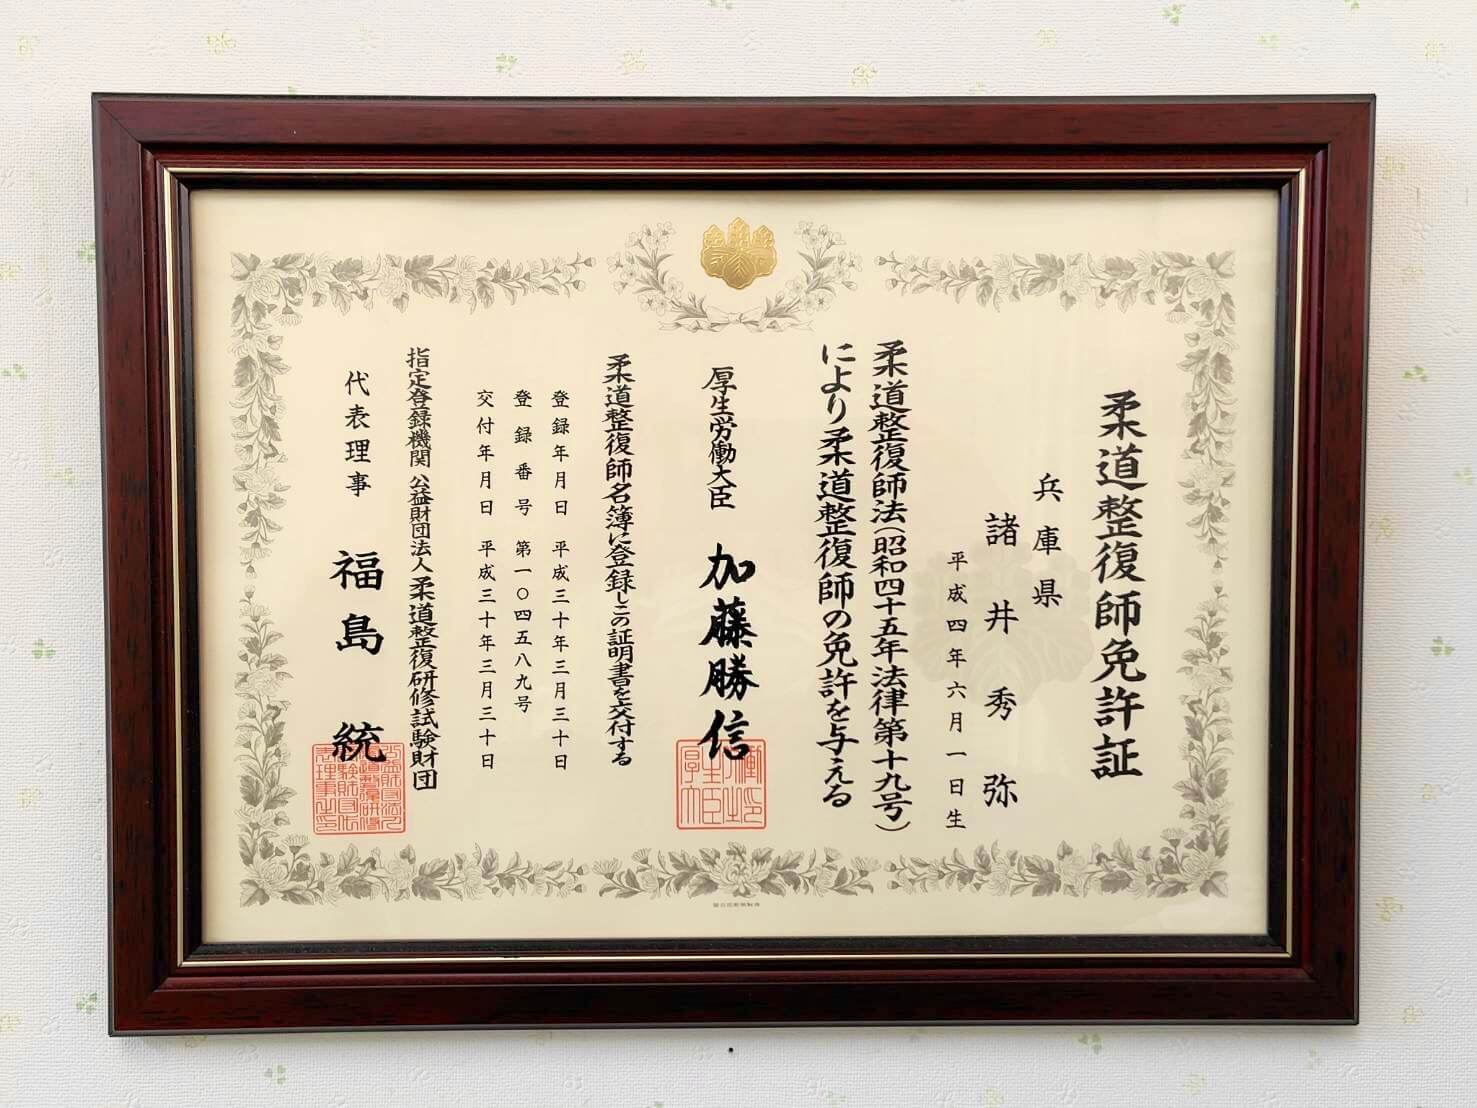 柔道整復師免許証
兵庫県
諸井秀弥
平成四年六月一日生
柔道整復師法(昭和四十五年法律第十九号)
により柔道整復師の免許を与える
厚生労働大臣 加藤勝信
柔道整復師名簿に登録しこの証明書を交付する
登録年月日 平成三十年三月三十日
登録番号 第一〇四五八九号
交付年月日 平成三十年三月三十日
指定登録機関 公益財団法人柔道整復研修試験財団
代表理事 福島統